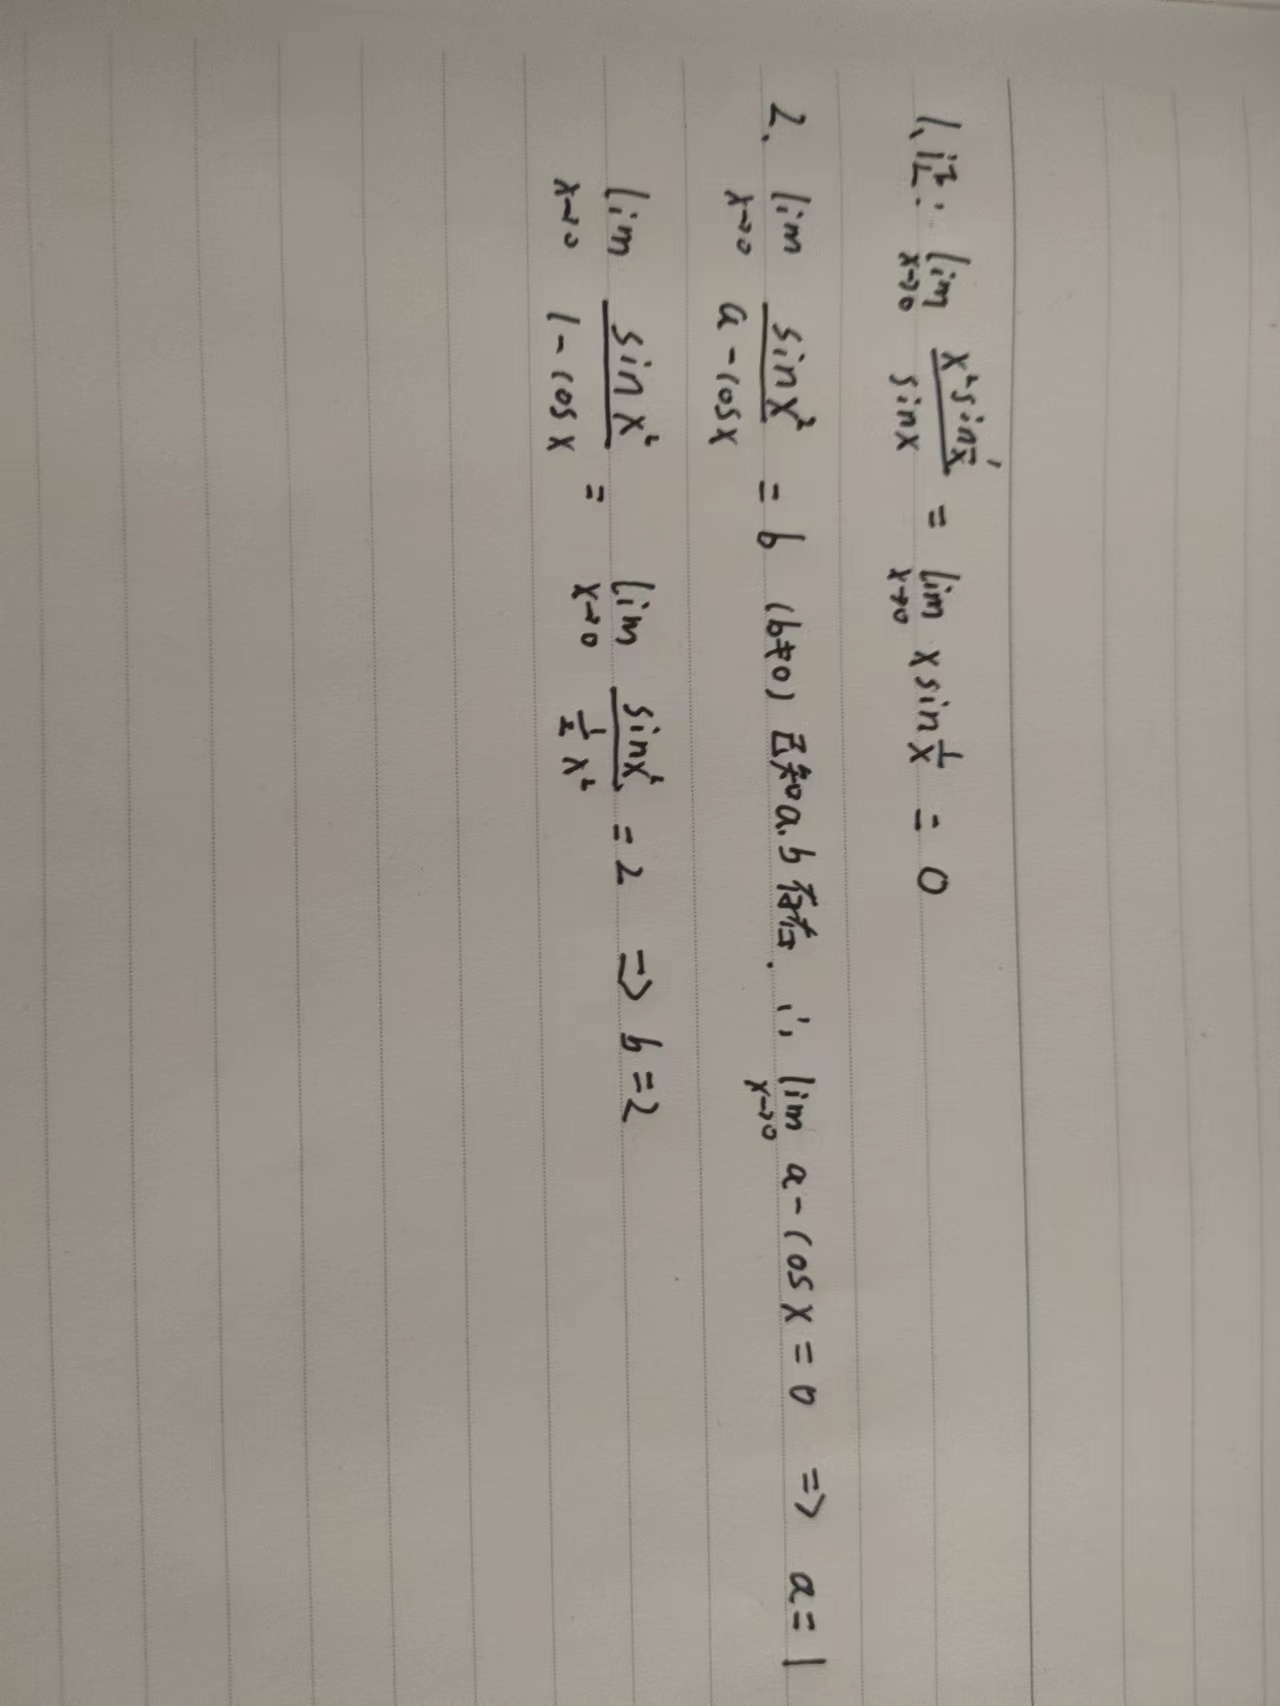 1、证: lim x→0 x²sin 1/x / sinx = lim x→0 x sin 1/x = 0
2、 lim x→0 sinx² / a-cosx = b (b≠0) 已知a.b存在. ∴ lim x→0 a-cosx=0 => a=1
lim x→0 sinx² / 1-cosx = lim x→0 sinx² / ½x² = 2 => b=2